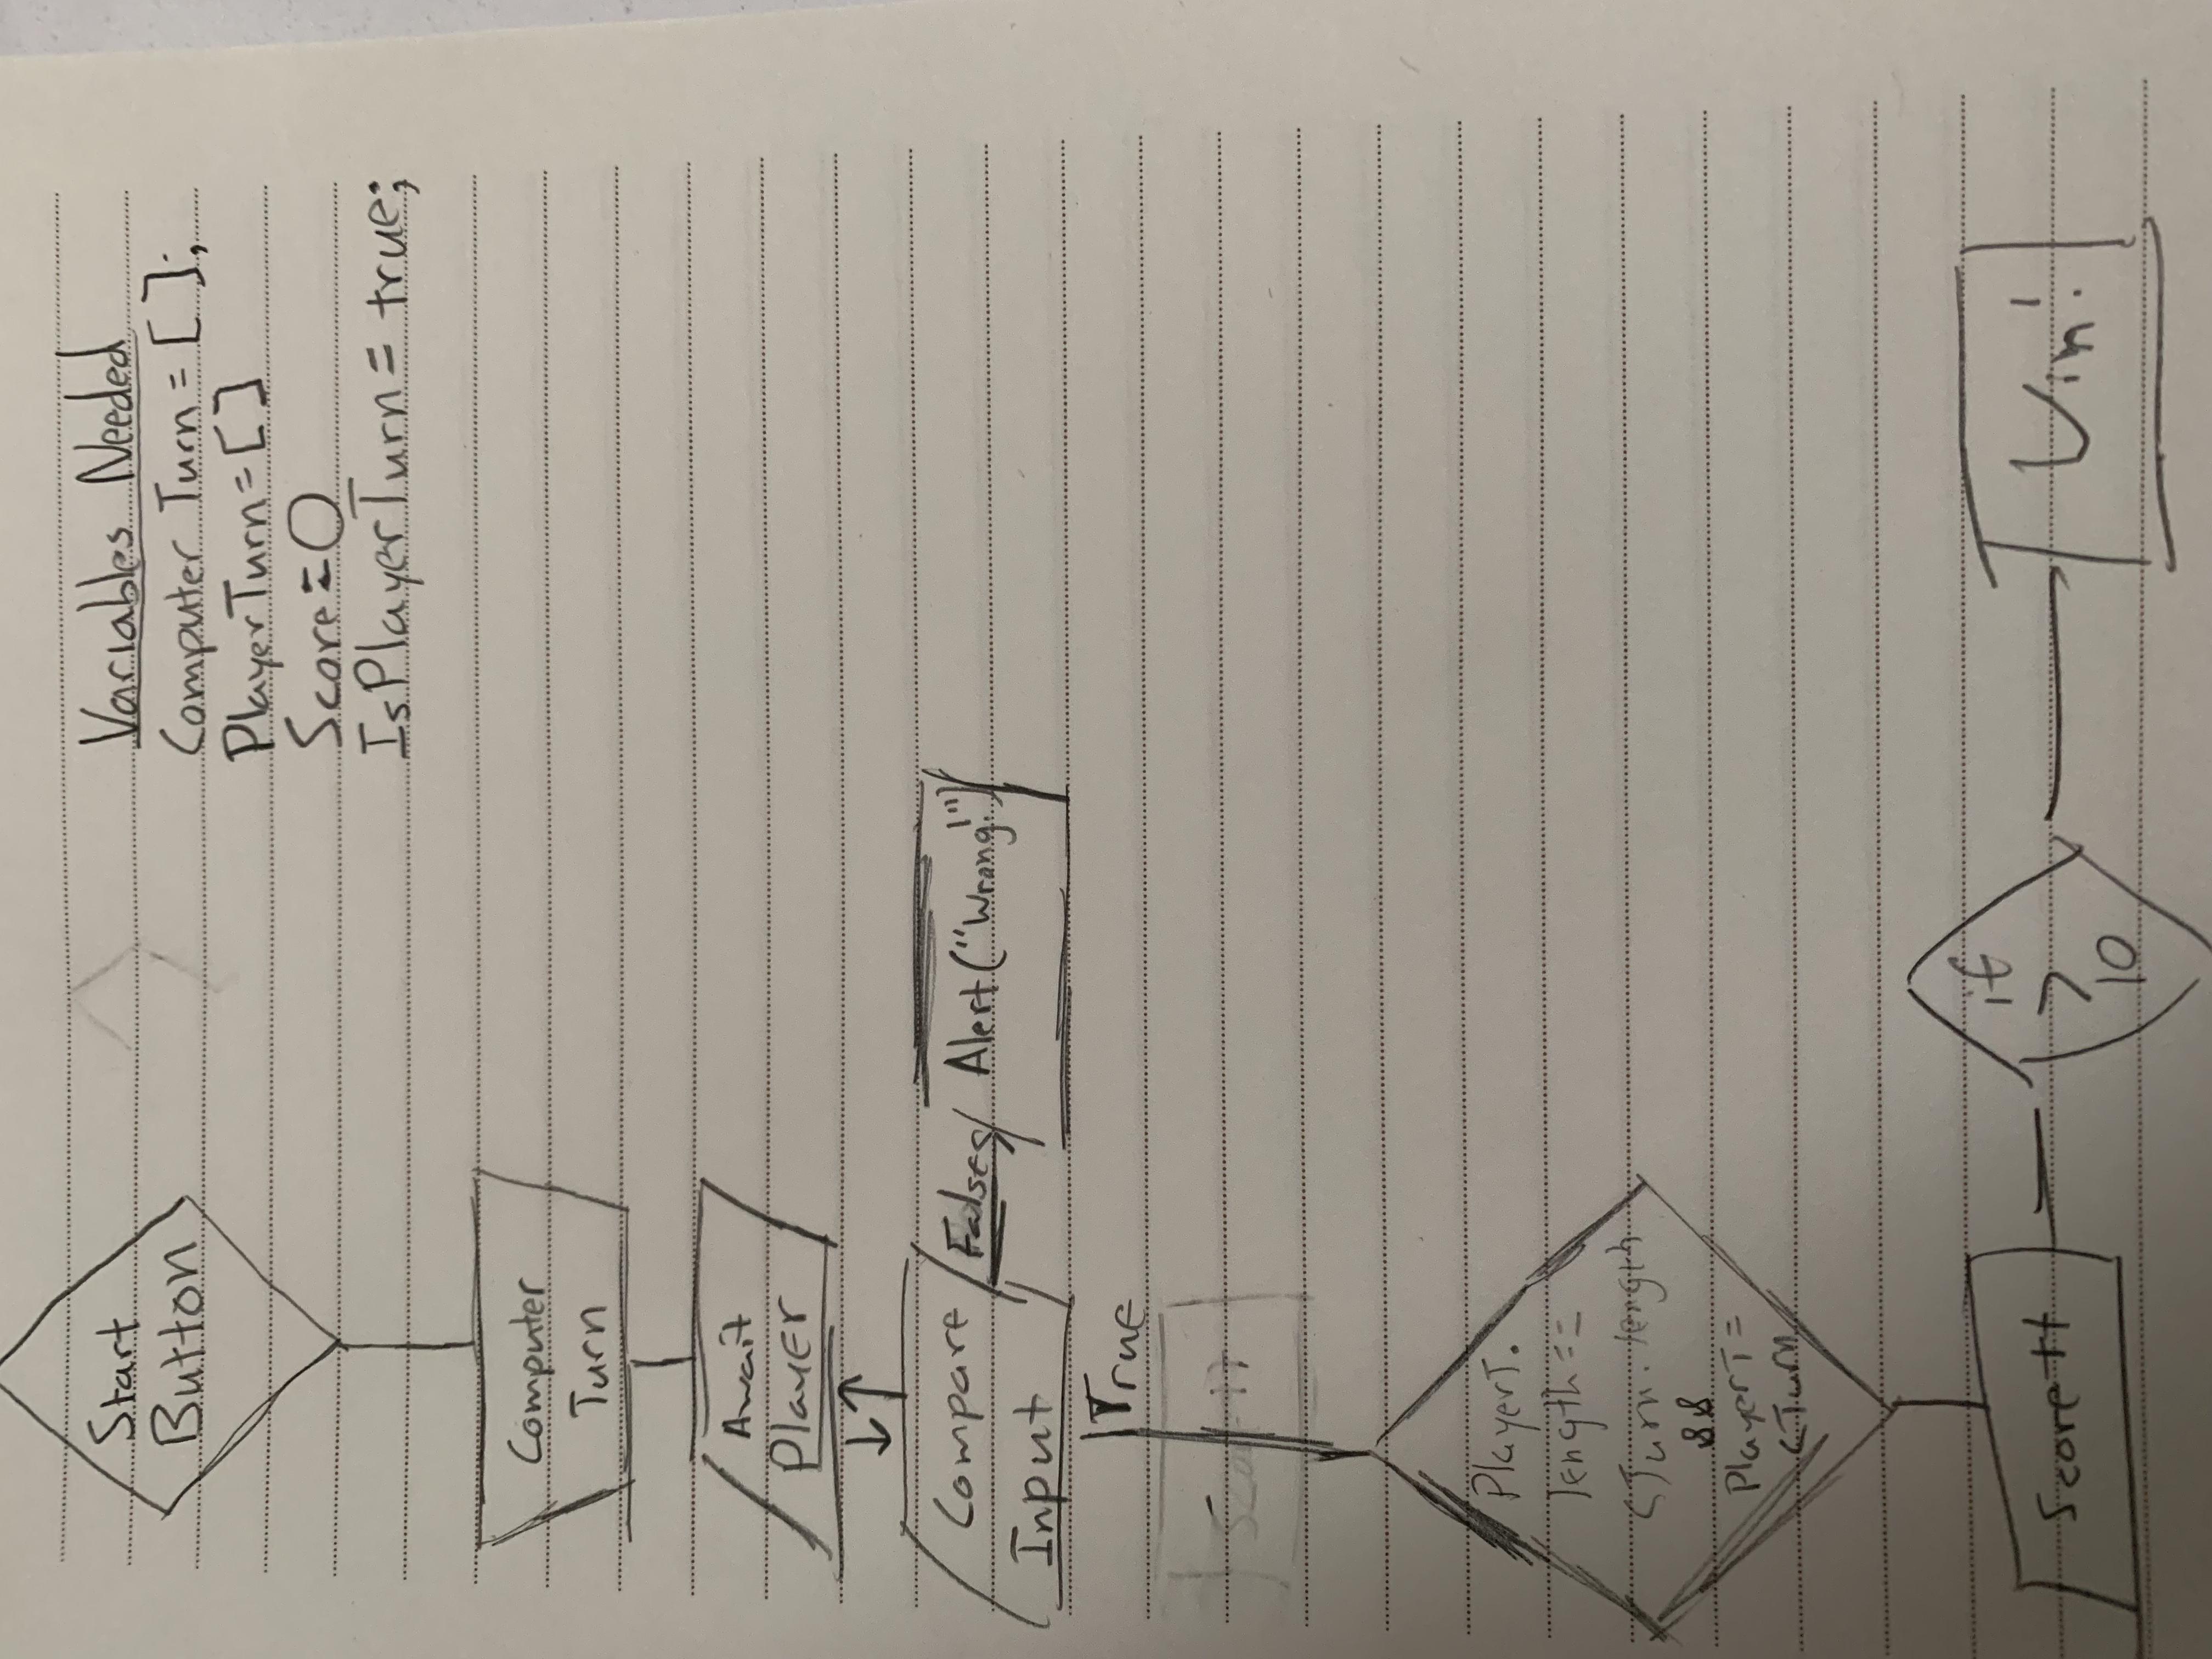 Start
Button
Variables Needed
Computer Turn = [ ];
PlayerTurn = [ ]
Score = 0
IsPlayerTurn = true;
Computer
Turn
Await
Player
Compare
Input
False
Alert("Wrong!")
True
PlayerT.
length ==
CTurn.length
&&
PlayerT =
CTurn
Score++
if
>
10
Win!